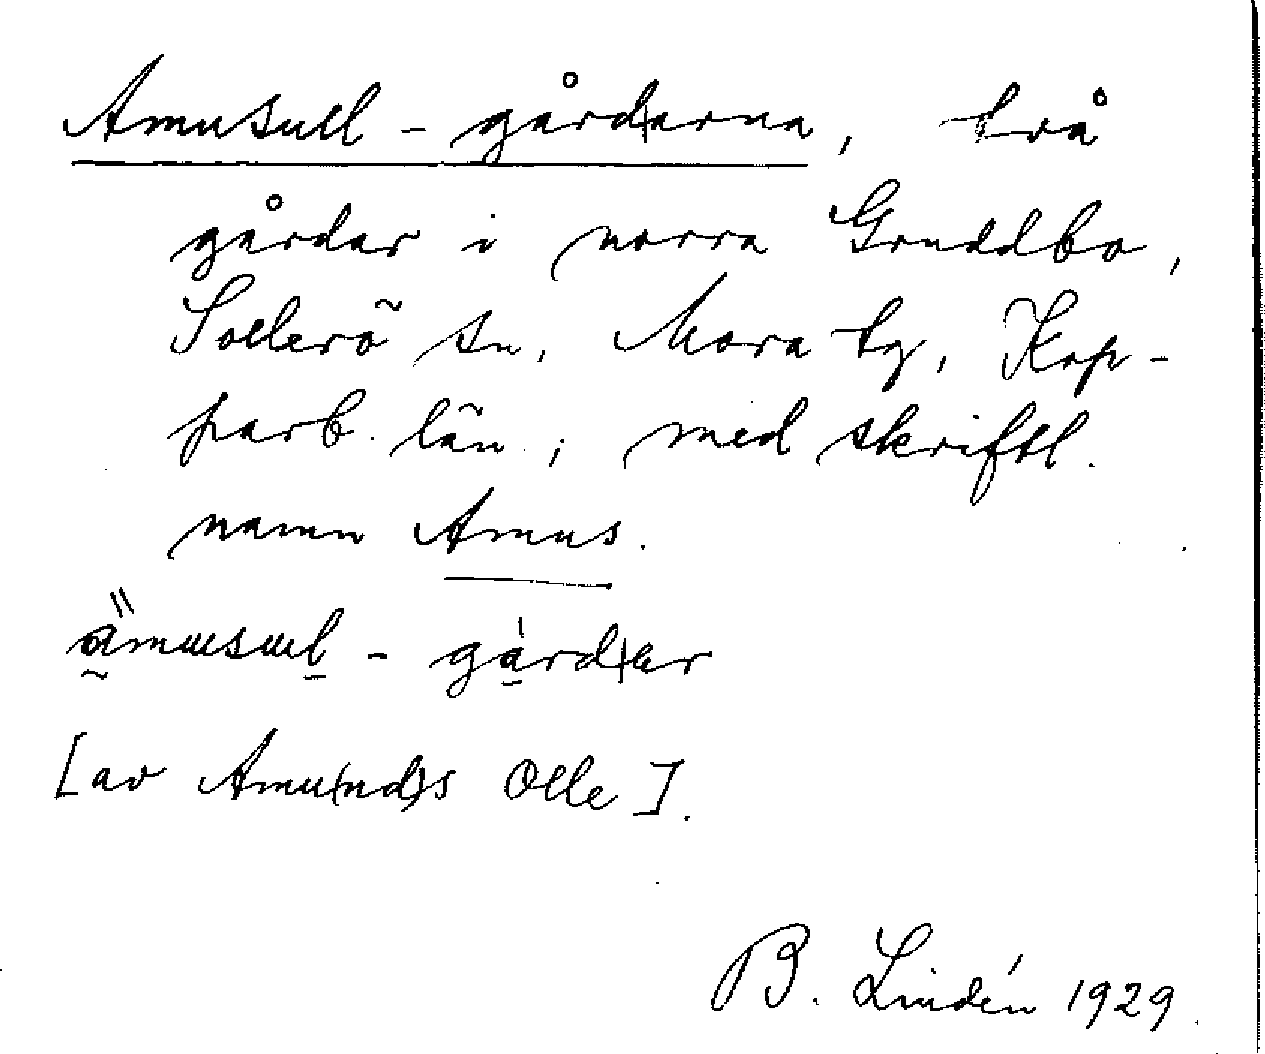 Amusull-gård(arna, två
gårdar i norra Gruddbo,
Sollerö sn, Mora tg, Kop-
parb. län; med skriftl.
namn Amus.
ämusul - gård(ar
[av Amu(nd)s Olle].
B. Lindén 1929.